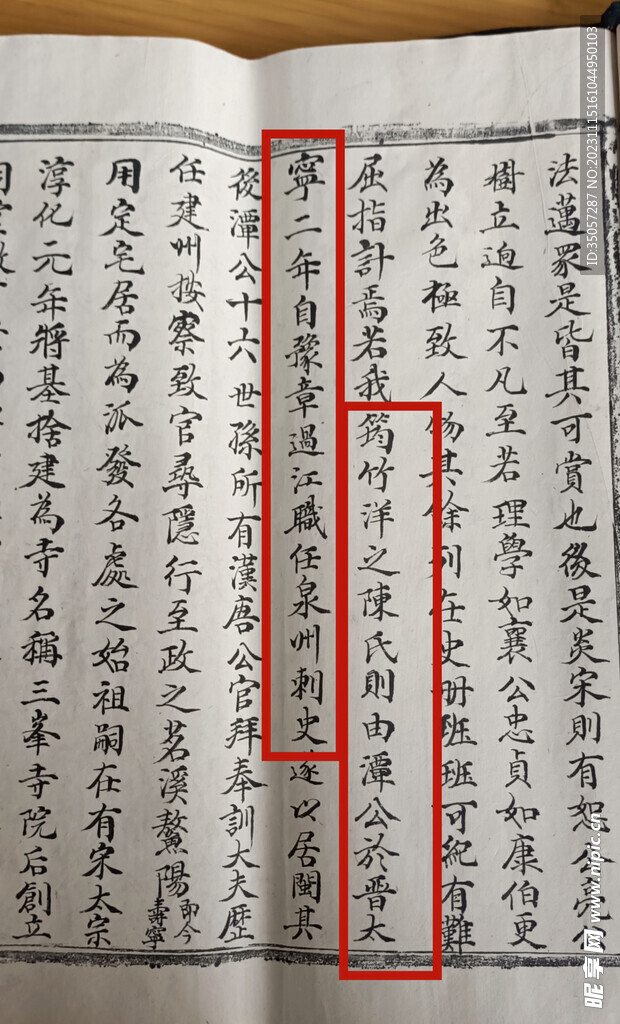 法邁眾是皆其可賞也後是炎宋則有恕公亮公
樹立迥自不凡至若理學如襄公忠貞如康伯更
為出色極致人物其餘列在史冊班班可紀有難
屈指計焉若我筠竹洋之陳氏則由潭公於晉太
寧二年自豫章過江職任泉州刺史遂以居閩其
後潭公十六世孫所有漢唐公官拜奉訓大夫歷
任建州按察致官尋隱行至政之茗溪鰲陽即今壽寧
用定宅居而為派發各處之始祖嗣在有宋太宗
淳化元年將基捨建為寺名稱三峯寺院后創立
ID:35057287 NO:20231115161044950103
昵享网 www.nipic.cn